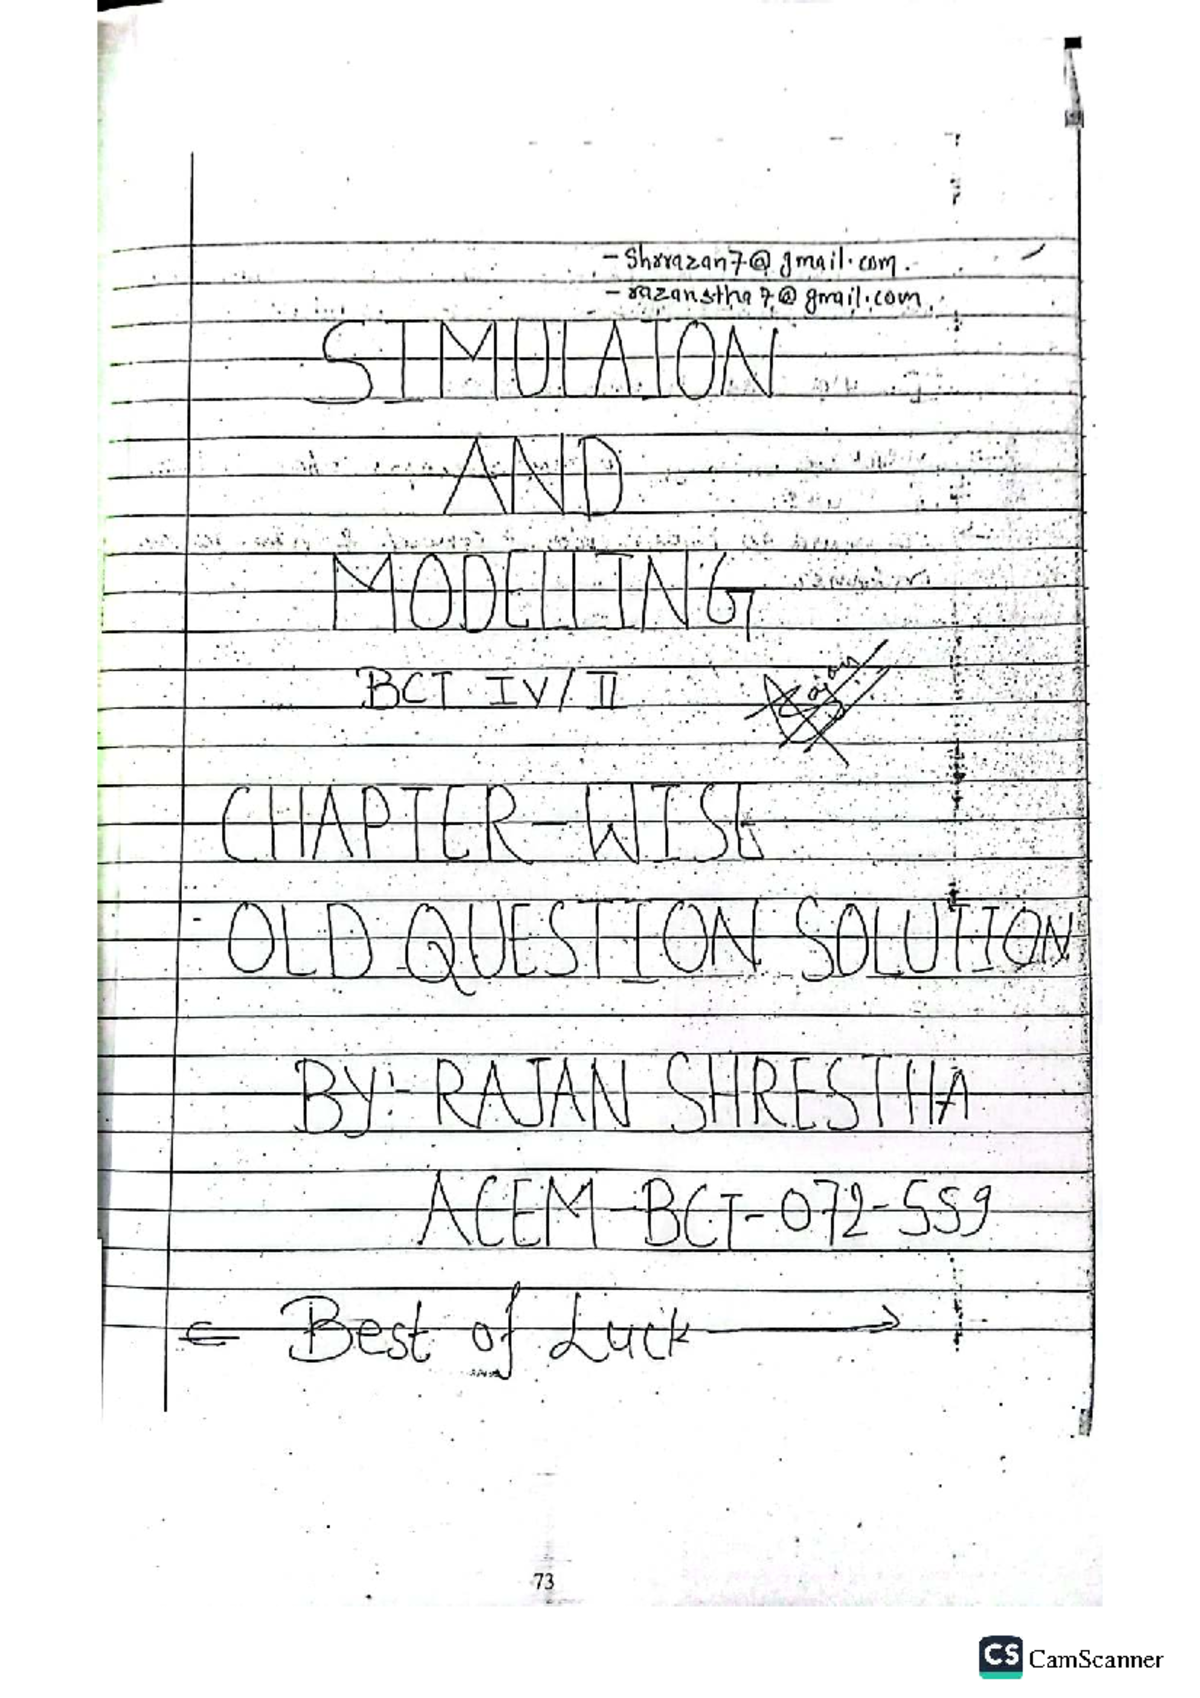 - Shrrazan7@gmail.com.
- razanstha7@gmail.com.
SIMULAION
AND
MODELLING
BCT IV/II
CHAPTER-WISE
OLD QUESTION SOLUTION
BY:- RAJAN SHRESTHA
ACEM-BCT-072-559
Best of Luck
73
CS CamScanner